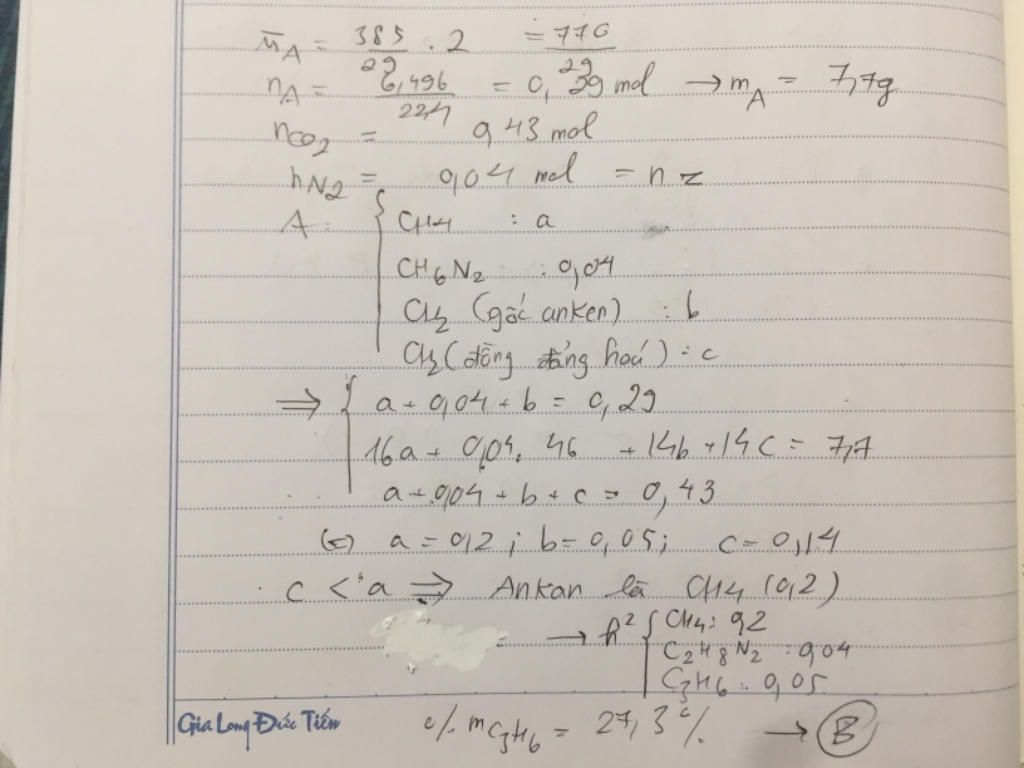 M̅A = 385/29 . 2 = 770/29
nA = 6,496/22,4 = 0,29 mol → mA = 7,7g
nCO2 = 0,43 mol
nN2 = 0,04 mol = nZ
A: { CH4 : a
CH6N2 : 0,04
CH2 (gốc anken) : b
CH2 (đồng đẳng hoá) : c
⇒ { a + 0,04 + b = 0,29
16a + 0,04. 46 + 14b + 14c = 7,7
a + 0,04 + b + c = 0,43
(=) a = 0,2 ; b = 0,05; c = 0,14
c < a ⇒ Ankan là CH4 (0,2)
→ h² { CH4: 0,2
C2H8N2 : 0,04
C3H6 : 0,05
Gia Long Đức Tiến
% mC3H6 = 27,3% → B